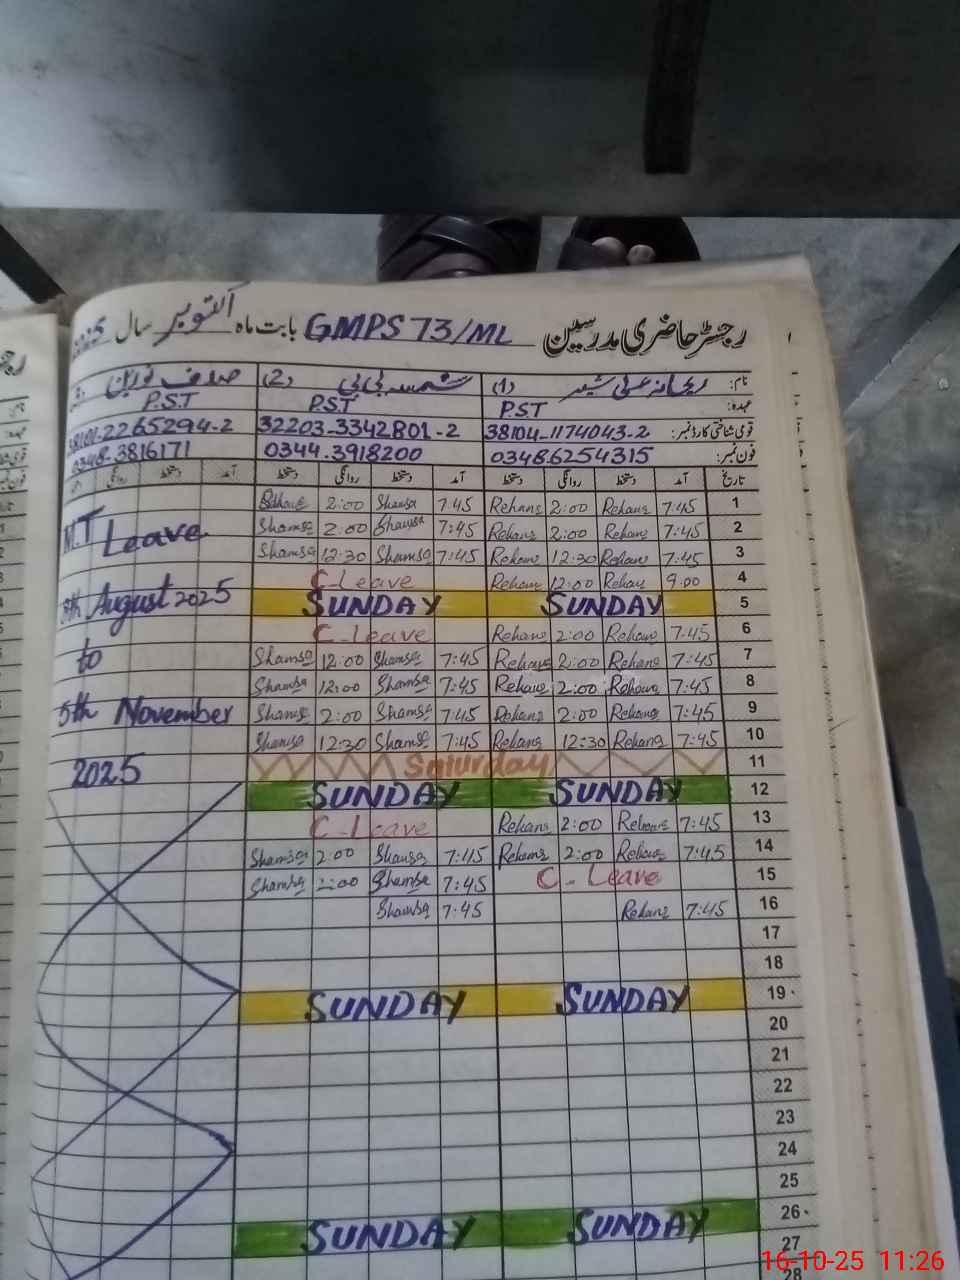 رجسٹر حاضری مدرسین GMPS 73/ML بابت ماہ اکتوبر سال 2025
نام: (1) ریحانہ (2) شمسہ بی بی صدف نورین
عہدہ: P.S.T P.S.T P.S.T
قومی شناختی کارڈ نمبر: 38104-1174043-2 32203-3342801-2 38101-2265294-2
فون نمبر: 03486254315 0344-3918200 0348-3816171
تاریخ آمد دستخط روانگی دستخط آمد دستخط روانگی دستخط آمد دستخط روانگی
1 7:45 Rehana 2:00 Rehana 7:45 Shamsa 2:00
2 7:45 Rehana 2:00 Rehana 7:45 Shamsa 2:00 Shamsa
3 7:45 Rehana 12:30 Rehana 7:45 Shamsa 12:30 Shamsa
4 9:00 Rehana 12:00 Rehana C-Leave
5 SUNDAY SUNDAY
6 7:45 Rehana 2:00 Rehana C-Leave
7 7:45 Rehana 2:00 Rehana 7:45 Shamsa 12:00 Shamsa
8 7:45 Rehana 2:00 Rehana 7:45 Shamsa 12:00 Shamsa
9 7:45 Rehana 2:00 Rehana 7:45 Shamsa 2:00 Shamsa
10 7:45 Rehana 12:30 Rehana 7:45 Shamsa 12:30 Shamsa
11 Saturday
12 SUNDAY SUNDAY
13 7:45 Rehana 2:00 Rehana C-Leave
14 7:45 Rehana 2:00 Rehana 7:45 Shamsa 2:00 Shamsa
15 C-Leave 7:45 Shamsa 2:00 Shamsa
16 7:45 Rehana 7:45 Shamsa
17
18
19 SUNDAY SUNDAY
20
21
22
23
24
25
26 SUNDAY SUNDAY
27
28
M.T Leave
5th August 2025
to
5th November
2025
16-10-25 11:26